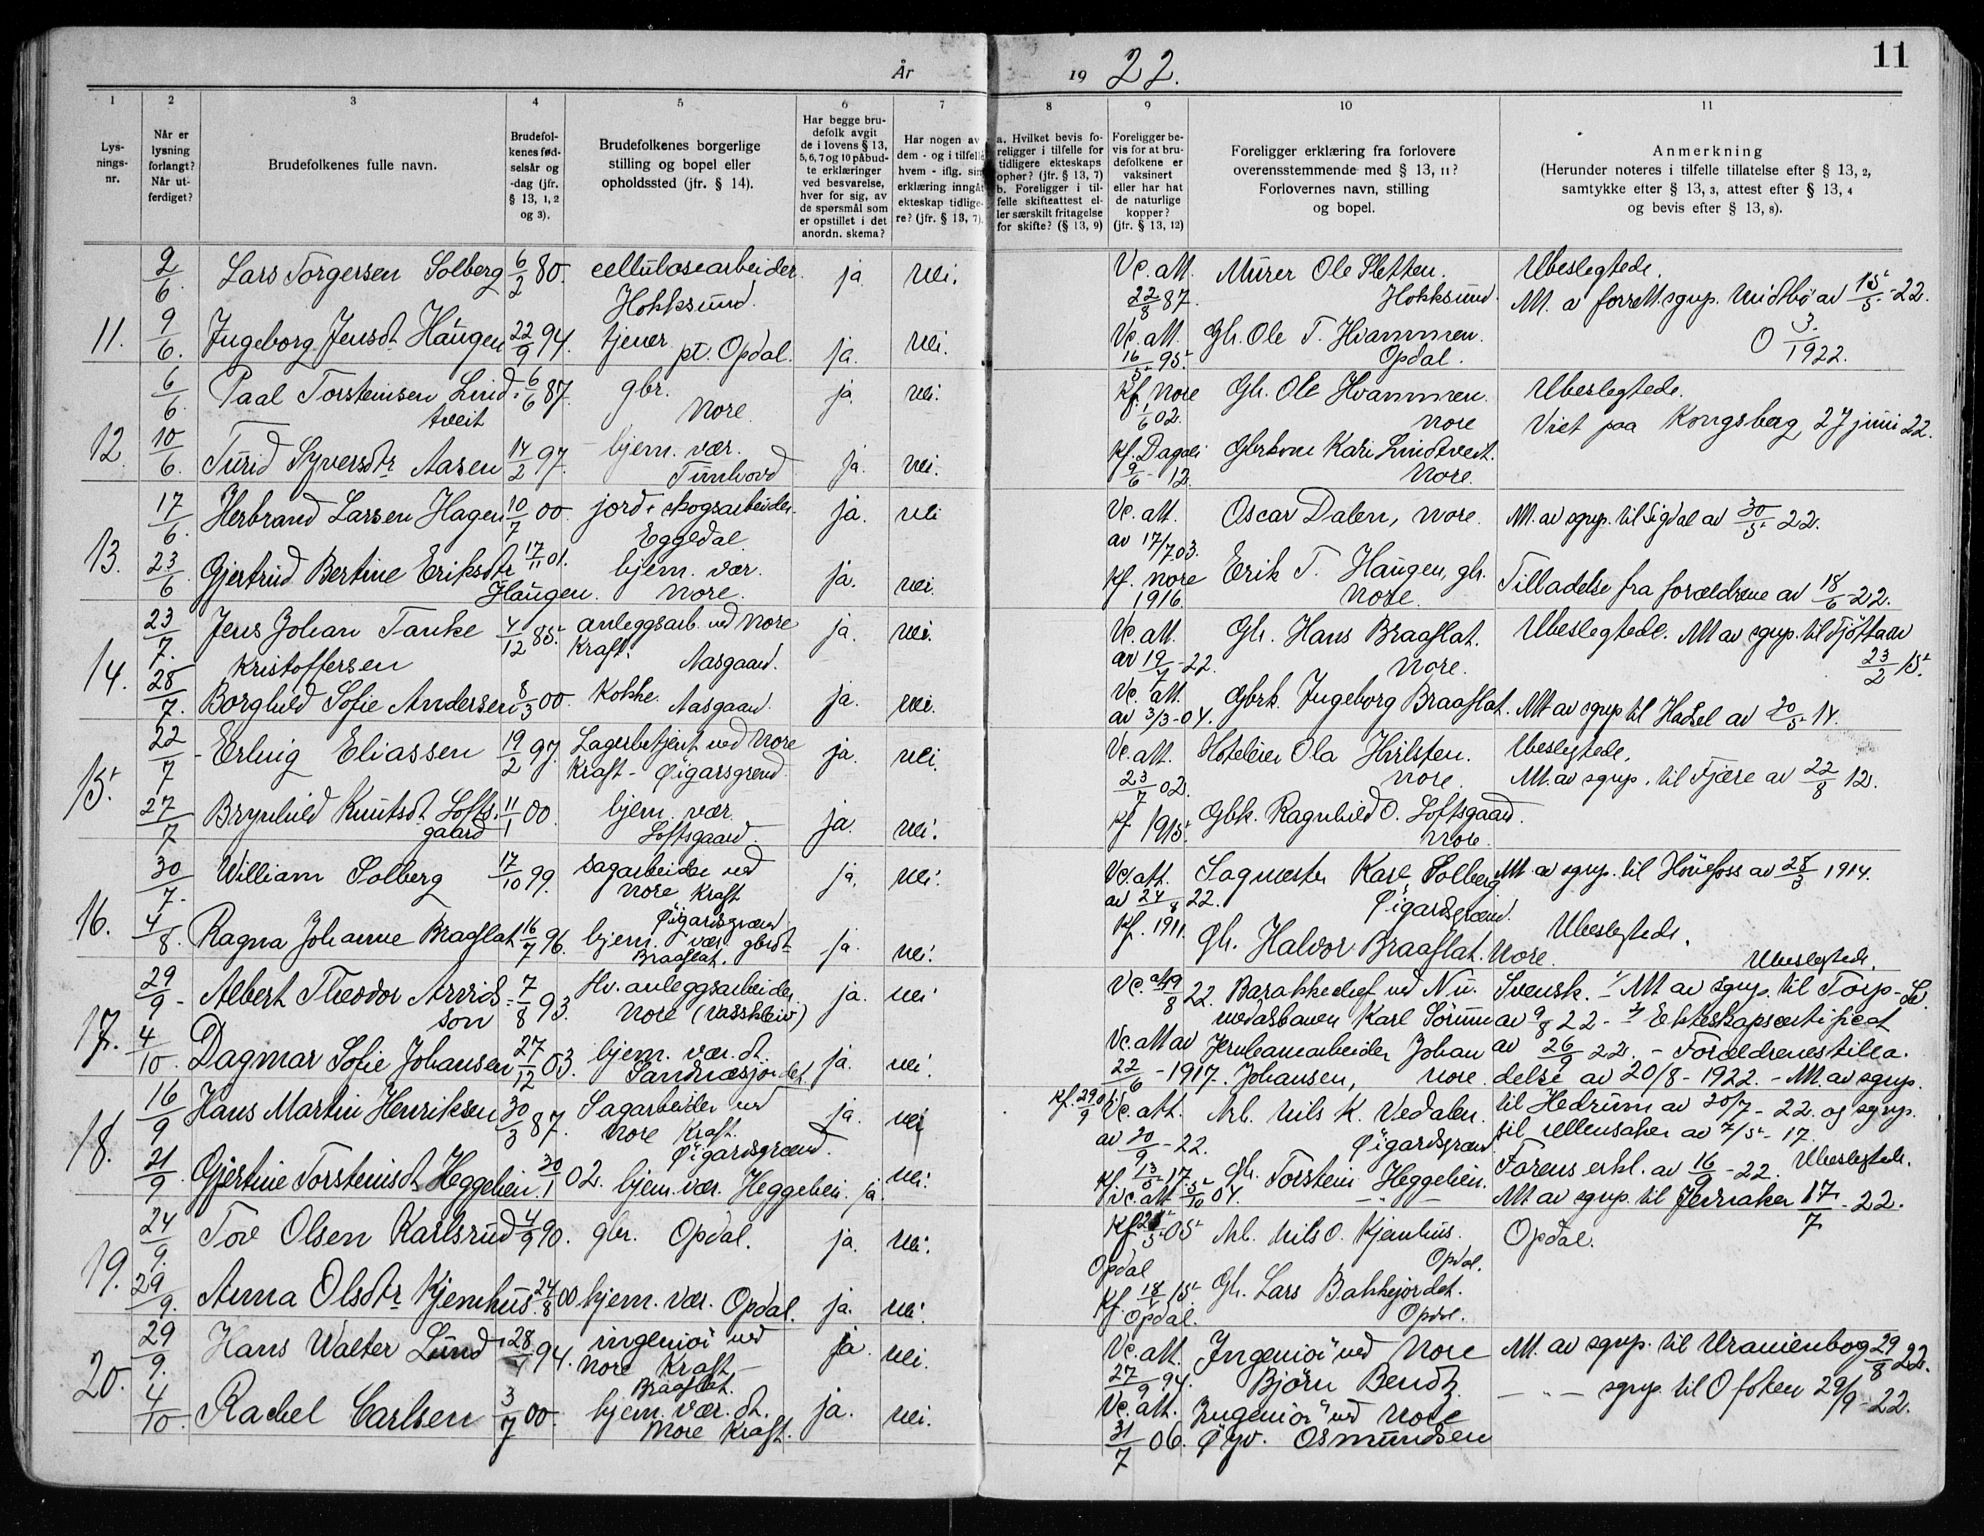 11
År 1922.
1 2 3 4 5 6 7 8 9 10 11
Lys-
nings-
nr.
Når er
lysning
forlangt?
Når ut-
ferdiget?
Brudefolkenes fulle navn.
Brudefol-
kenes fød-
selsår og
-dag (jfr.
§ 13, 1, 2
og 3).
Brudefolkenes borgerlige
stilling og bopel eller
opholdssted (jfr. § 14).
Har begge bru-
defolk avgit
de i lovens § 13,
5, 6, 7 og 10 påbud-
te erklæringer
ved besvarelse,
hver for sig, av
de spørsmål som
er opstillet i det
anordn. skema?
Har nogen av
dem - og i tilfelle
hvem - iflg. sin
erklæring inngått
ekteskap tidlige-
re? (jfr. § 13, 7).
a. Hvilket bevis fo-
religger i tilfelle for
tidligere ekteskaps
ophør? (jfr. § 13, 7)
b. Foreligger i til-
felle skifteattest el-
ler særskilt fritagelse
for skifte? (§ 13, 9)
Foreligger be-
vis for at bru-
defolkene er
vaksinert
eller har hat
de naturlige
kopper?
(jfr. § 13, 12)
Foreligger erklæring fra forlovere
overensstemmende med § 13, 11?
Forlovernes navn, stilling
og bopel.
Anmerkning
(Herunder noteres i tilfelle tillatelse efter § 13, 2,
samtykke efter § 13, 3, attest efter § 13, 4
og bevis efter § 13, 8).
11.
2/6. Lars Torgersen Solberg 6/2 80. cellulosearbeider. Hokksund. ja nei. Vc. att. 22/8 87. Murer Ole Sletten. Hokksund. Ubeslegtede.
Att. a forrett. sgnp. av 15/5 - 22.
9/6. Ingeborg Jensdt Haugen 22/9 94. tjener pt. Opdal. ja. nei. Vc. att. 16/5 95. Gbr. Ole T. Hvammen. Opdal. O 3/1922.
12.
6/6. Paal Torsteinsen Lind-
tveit 6/6 87. gbr. Nore ja. nei. Kf. Nore 1/6 02. Gbr. Ole Hvammen. Nore Ubeslegtede.
Viet paa Kongsberg 27 juni 22.
10/6. Turid Syversdtr Aasen 14/2 97. hjem. vær. Tunhovd ja. nei. Kf. Dagali 9/6 - 12. Gbrkone Kari Lindtveit. Nore.
13.
17/6. Herbrand Larsen Hagen 10/7 00. jord & skogsarbeider. Eggedal ja. nei Vc. att. av 17/7 03. Oscar Dalen, Nore. Att. av sgnp. til Sigdal av 30/5 22.
23/6 Gjertrud Bertine Eriksdtr
Haugen. 17/11 01. hjem. vær. Nore. ja. nei. Kf. Nore 1916 Erik T. Haugen, gbr. Nore. Tilladelse fra forældrene av 18/6 22.
14.
23/7. Jens Johan Tanke
Kristoffersen 4/12 85. anleggsarb. ved Nore
Kraft. Aasgaard. ja. nei. Vc. att. av 19/7 - 22. Gbr. Hans Braaflat. Nore. Ubeslegtede. Att av sgnp. til Tjøttaen
23/2 15.
28/7. Borghild Sofie Andersen 8/3 00. Kokke. Aasgaard. ja. nei. Vc. att. av 3/3 - 04. Gbrk. Ingeborg Braaflat. Att av sgnp til Hadsel av 20/5 14.
15.
22/7 - Erling Eliassen 19/2 97. Lagerbetjent ved Nore
Kraft - Øigarsgrend. ja. nei. Vc. att. 23/7 02. Hoteleier Ola Hvilsten. Nore. Ubeslegtede.
Att. av sgnp. til Fjære av 22/8 12.
27/7 Brynhild Knutsdt Lofts-
gaard 11/1 00. hjem. vær. Loftsgaard. ja. nei. Kf 1915. Gbk. Ragnhild O. Loftsgaard. Nore.
16.
30/7. William Solberg 17/10 99. sagarbeider ved
Nore Kraft
Øigardsgrend ja. nei. Vc. att. av 24/8 22. Sagmester Karl Solberg
Øigardsgrend. Att av sgnp. til Hönefoss av 28/3 1914.
4/8. Ragna Johanne Braaflat 16/7 96. hjem. vær. gbrdt
Braaflat. ja. nei. Kf. 1911. Gbr. Halvor Braaflat. Nore. Ubeslegtede.
17.
29/9 - Albert Theodor Arvids-
son 7/8 93. Hv. anleggsarbeider
Nore (Vasskleiv) ja. nei Vc. att 19/8 22. Barakkechef ved Nu-
medalsbanen Karl Sörum Ubeslegtede.
Svensk. 1/ Att av sgnp. til Torp -
av 9/8 22 - 2/ Ekteskapscertificat
4/10. Dagmar Sofie Johansen 27/12 03. hjem. vær. dt.
Sandnæsjordet. ja. nei. Vc. att av 22/6 - 1917. Jernbanearbeider Johan
Johansen, Nore av 26/9 22. - Forældrenes tilla-
delse av 20/8 - 1922. - Att. av sgnp.
18.
16/9 Hans Martin Henriksen 30/3 87. Sagarbeider ved
Nore Kraft.
Øigardsgrend. ja. nei Kf. 29/9 01 Vc. att. av 20/9 - 22. Arb. Nils K. Vedalen.
Øigardsgrend til Hedrum av 20/7 - 22. og sgnp.
til Ullensaker av 7/5 - 17.
21/9 Gjertine Torsteinsdt Heggelien. 30/1 02. hjem. vær. Heggelien. ja. nei. Kf. 13/5 17. Vc. att 5/10 04. Gbr. Torstein Heggelien. Farens erkl. av 16/9 - 22. Ubeslegtede.
Att av sgnp. til Jevnaker 17/7 - 22.
19.
24/9. Tov Olsen Karlsrud 4/9 90. gbr. Opdal. ja. nei. Kf 25/5 05 Opdal Arb. Nils O. Kjemhus. Opdal. Opdal.
29/9. Anna Olsdtr Kjemhus. 24/8 00 hjem. vær. Opdal. ja. nei. Kf. 18/ 15. Opdal. Gbr. Lars Bakkejordet. Opdal.
20.
29/9. Hans Walter Lund 28/ 94. ingeniör ved
Nore Kraft -
Braaflat. ja. nei. Vc. att. 27/9 94. Ingeniör ved Nore
Björn Bendz. Att. av sgnp. til Uranienborg 29/8 22.
4/10. Rachel Carlsen 3/7 00. hjem. vær. dt.
Nore Kraft. ja. nei. Vc. att. 31/7 06. Ingeniör ved Nore
Öyv. Osmundsen — " — sgnp. til Ofoten 29/9 - 22.